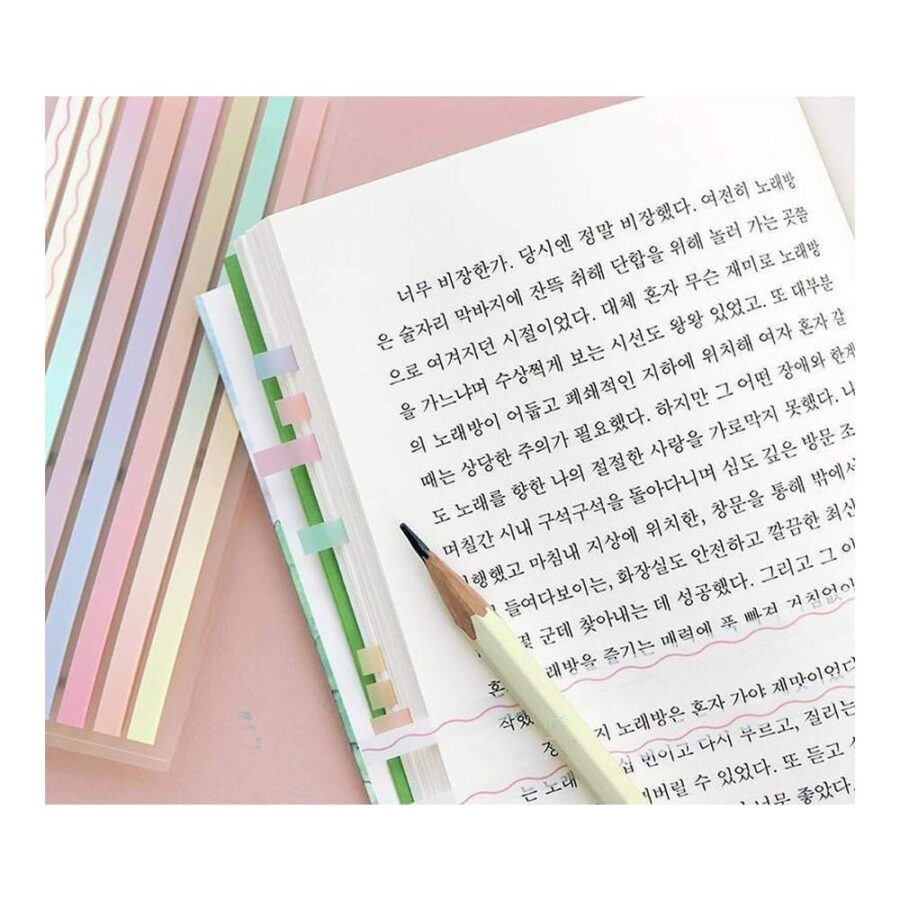 너무 비장한가. 당시엔 정말 비장했다. 여전히 노래방
은 술자리 막바지에 잔뜩 취해 단합을 위해 놀러 가는 곳쯤
으로 여겨지던 시절이었다. 대체 혼자 무슨 재미로 노래방
을 가느냐며 수상쩍게 보는 시선도 왕왕 있었고. 또 대부분
의 노래방이 어둡고 폐쇄적인 지하에 위치해 여자 혼자 갈
때는 상당한 주의가 필요했다. 하지만 그 어떤 장애와 한계
도 노래를 향한 나의 절절한 사랑을 가로막지 못했다. 나
며칠간 시내 구석구석을 돌아다니며 심도 깊은 방문 조
행했고 마침내 지상에 위치한, 창문을 통해 밖에서
들여다보이는, 화장실도 안전하고 깔끔한 최신
군데 찾아내는 데 성공했다. 그리고 그 이
혼 래방을 즐기는 매력에 푹 빠져 거침없이
작했
정 지 노래방은 혼자 가야 제맛이었다
는 노래 십 번이고 다시 부르고, 질리는
버릴 수 있었다. 또 듣고 싶
너무 좋았다.